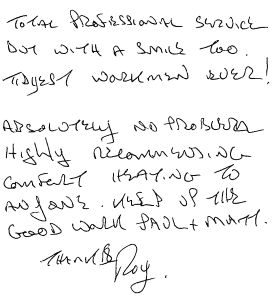 TOTAL PROFESSIONAL SERVICE
BUT WITH A SMILE TOO.
TIDYEST WORKMEN EVER!
ABSOLUTELY NO PROBLEM
HIGHLY RECOMMENDING
COMFORT HEATING TO
ANYONE. KEEP UP THE
GOOD WORK PAUL + MATT.
THANKS
Roy.